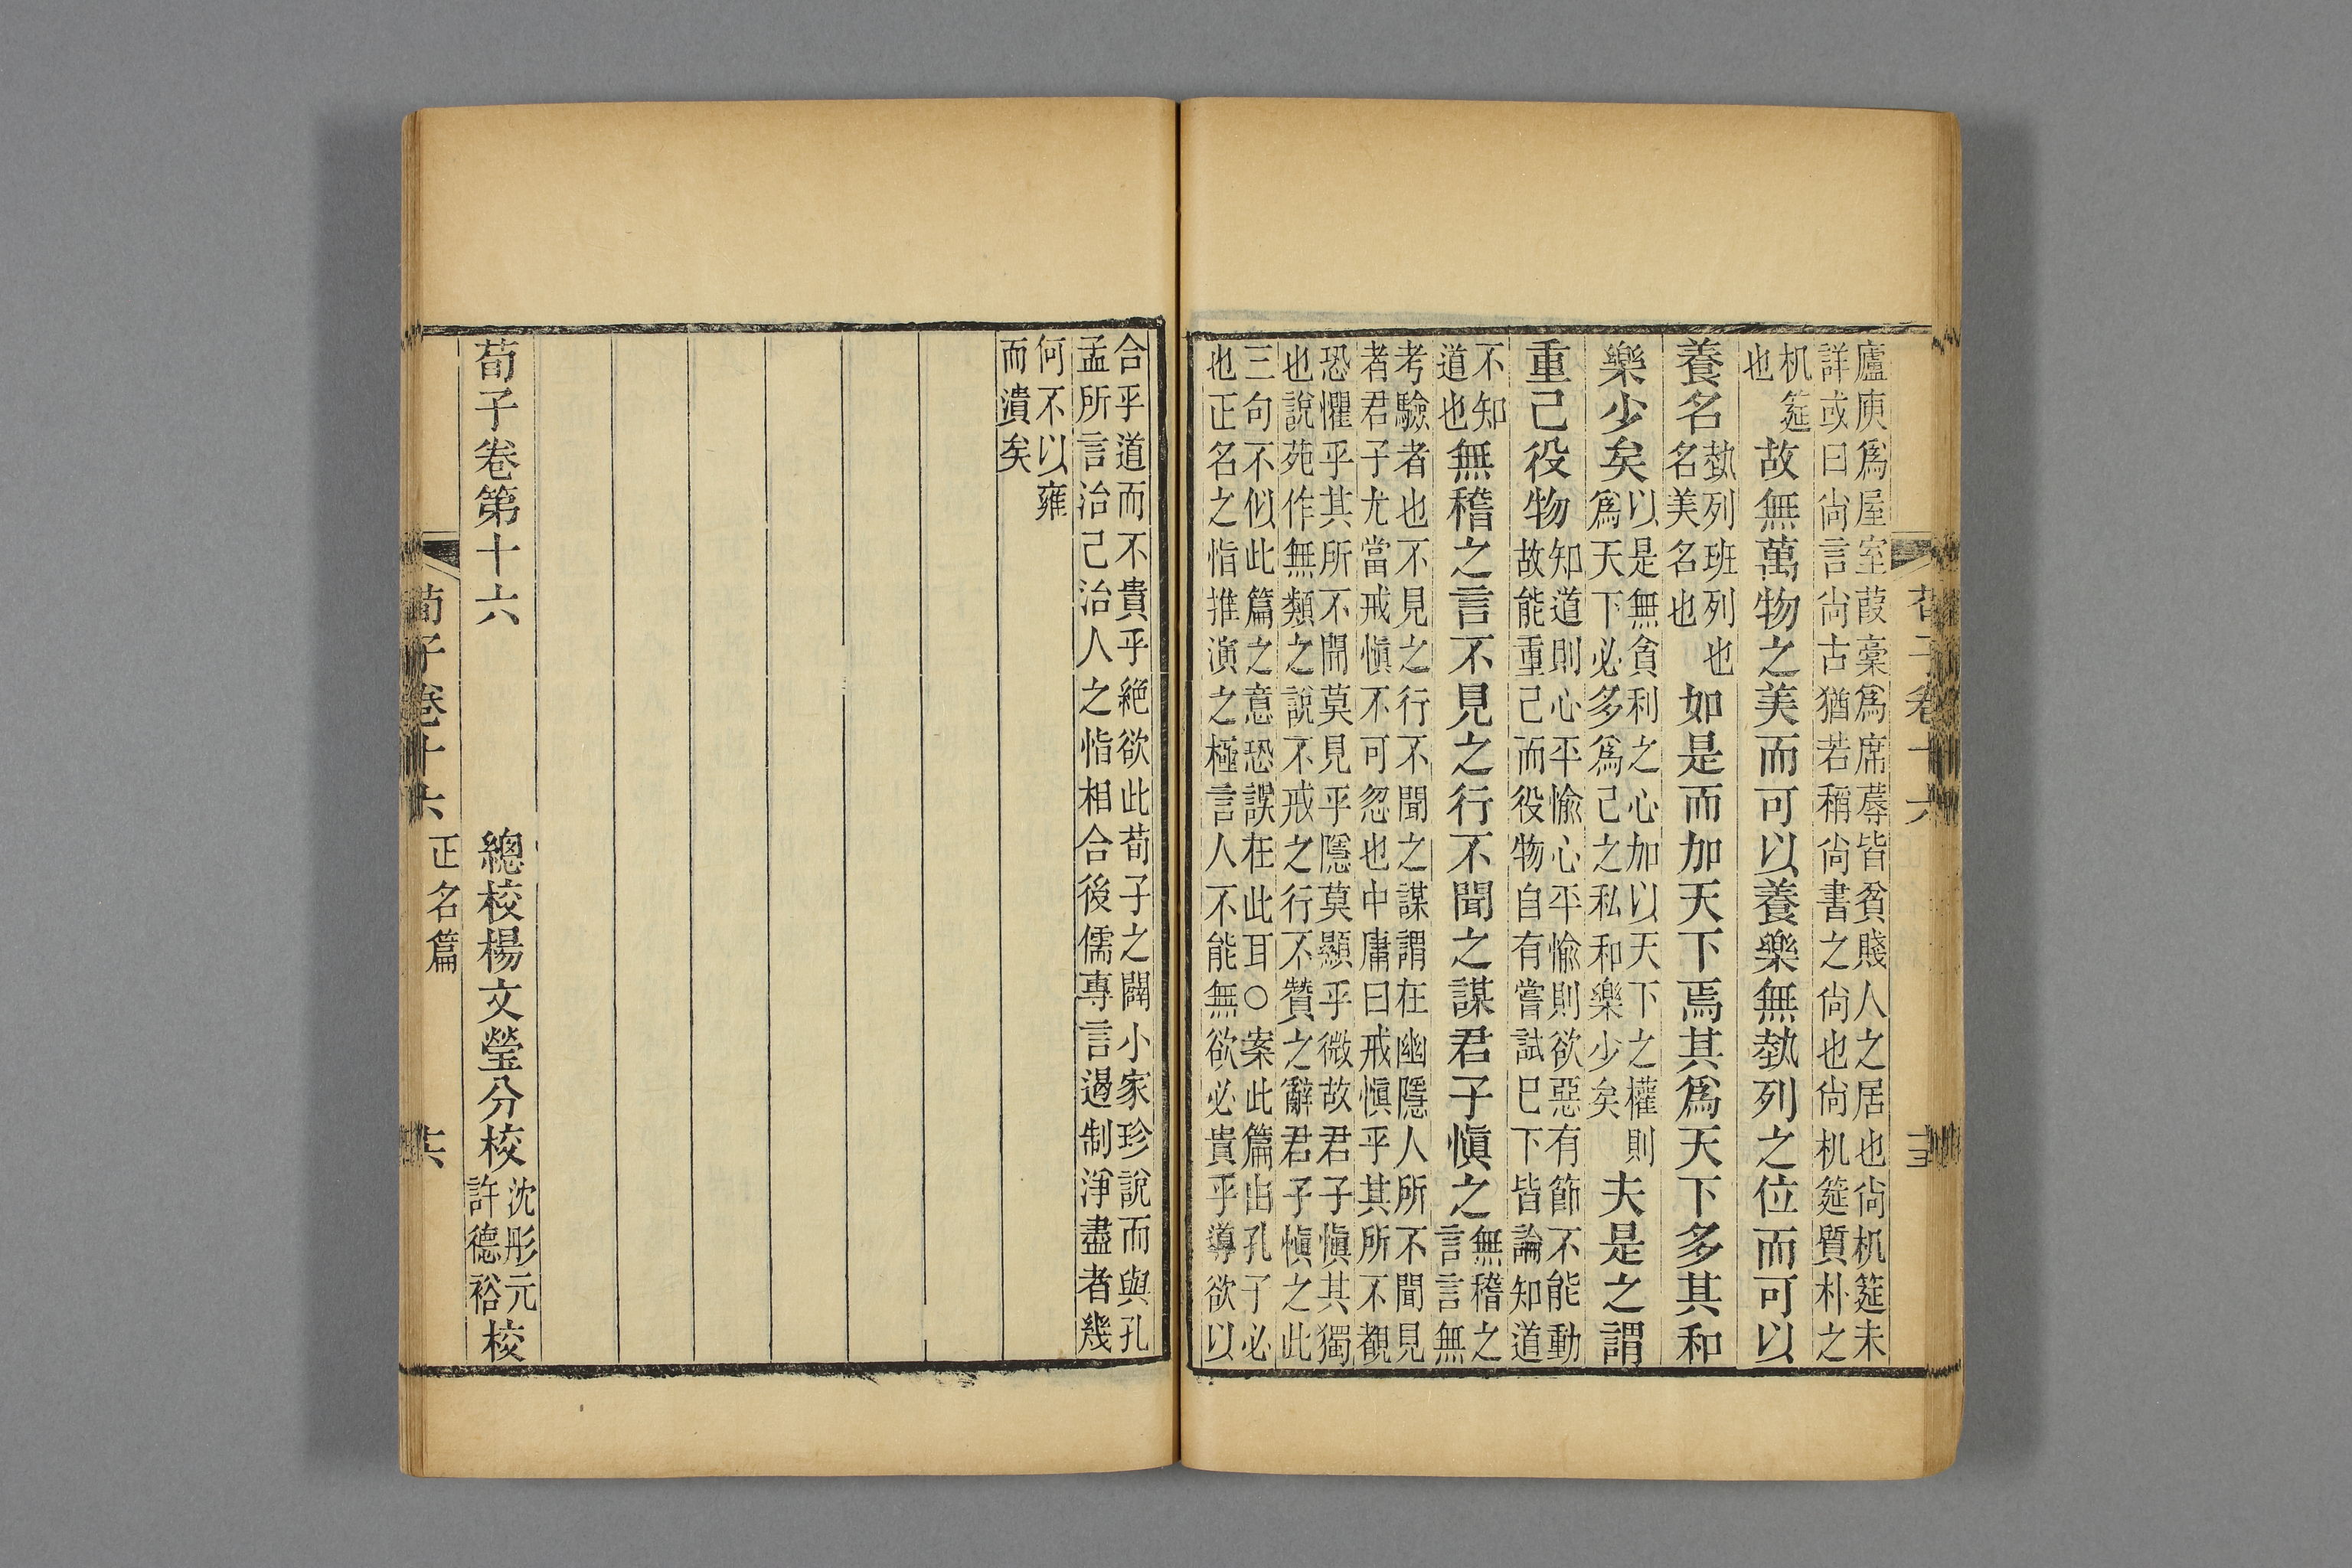 廬庾爲屋室葭稾爲席蓐皆貧賤人之居也尙机筵未
詳或曰尙言尙古猶若稱尙書之尙也尙机筵質朴之
机筵
也
故無萬物之美而可以養樂無埶列之位而可以
養名
埶列班列也
名美名也
如是而加天下焉其爲天下多其和
樂少矣
以是無貪利之心加以天下之權則
爲天下必多爲己之私和樂少矣
夫是之謂
重己役物
知道則心平愉心平愉則欲惡有節不能動
故能重己而役物自有嘗試已下皆論知道
不知
道也
無稽之言不見之行不聞之謀君子愼之
無稽之
言言無
考驗者也不見之行不聞之謀謂在幽隱人所不聞見
者君子尤當戒愼不可忽也中庸曰戒愼乎其所不覩
恐懼乎其所不聞莫見乎隱莫顯乎微故君子愼其獨
也說苑作無類之說不戒之行不贊之辭君子愼之此
三句不似此篇之意恐誤在此耳○案此篇由孔子必
也正名之恉推演之極言人不能無欲必貴乎導欲以
荀子卷十六
合乎道而不貴乎絕欲此荀子之闢小家珍說而與孔
孟所言治己治人之恉相合後儒專言遏制淨盡者幾
何不以雍
而潰矣
荀子卷第十六
總校楊文瑩分校
沈彤元
許德裕
校
荀子卷十六
正名篇